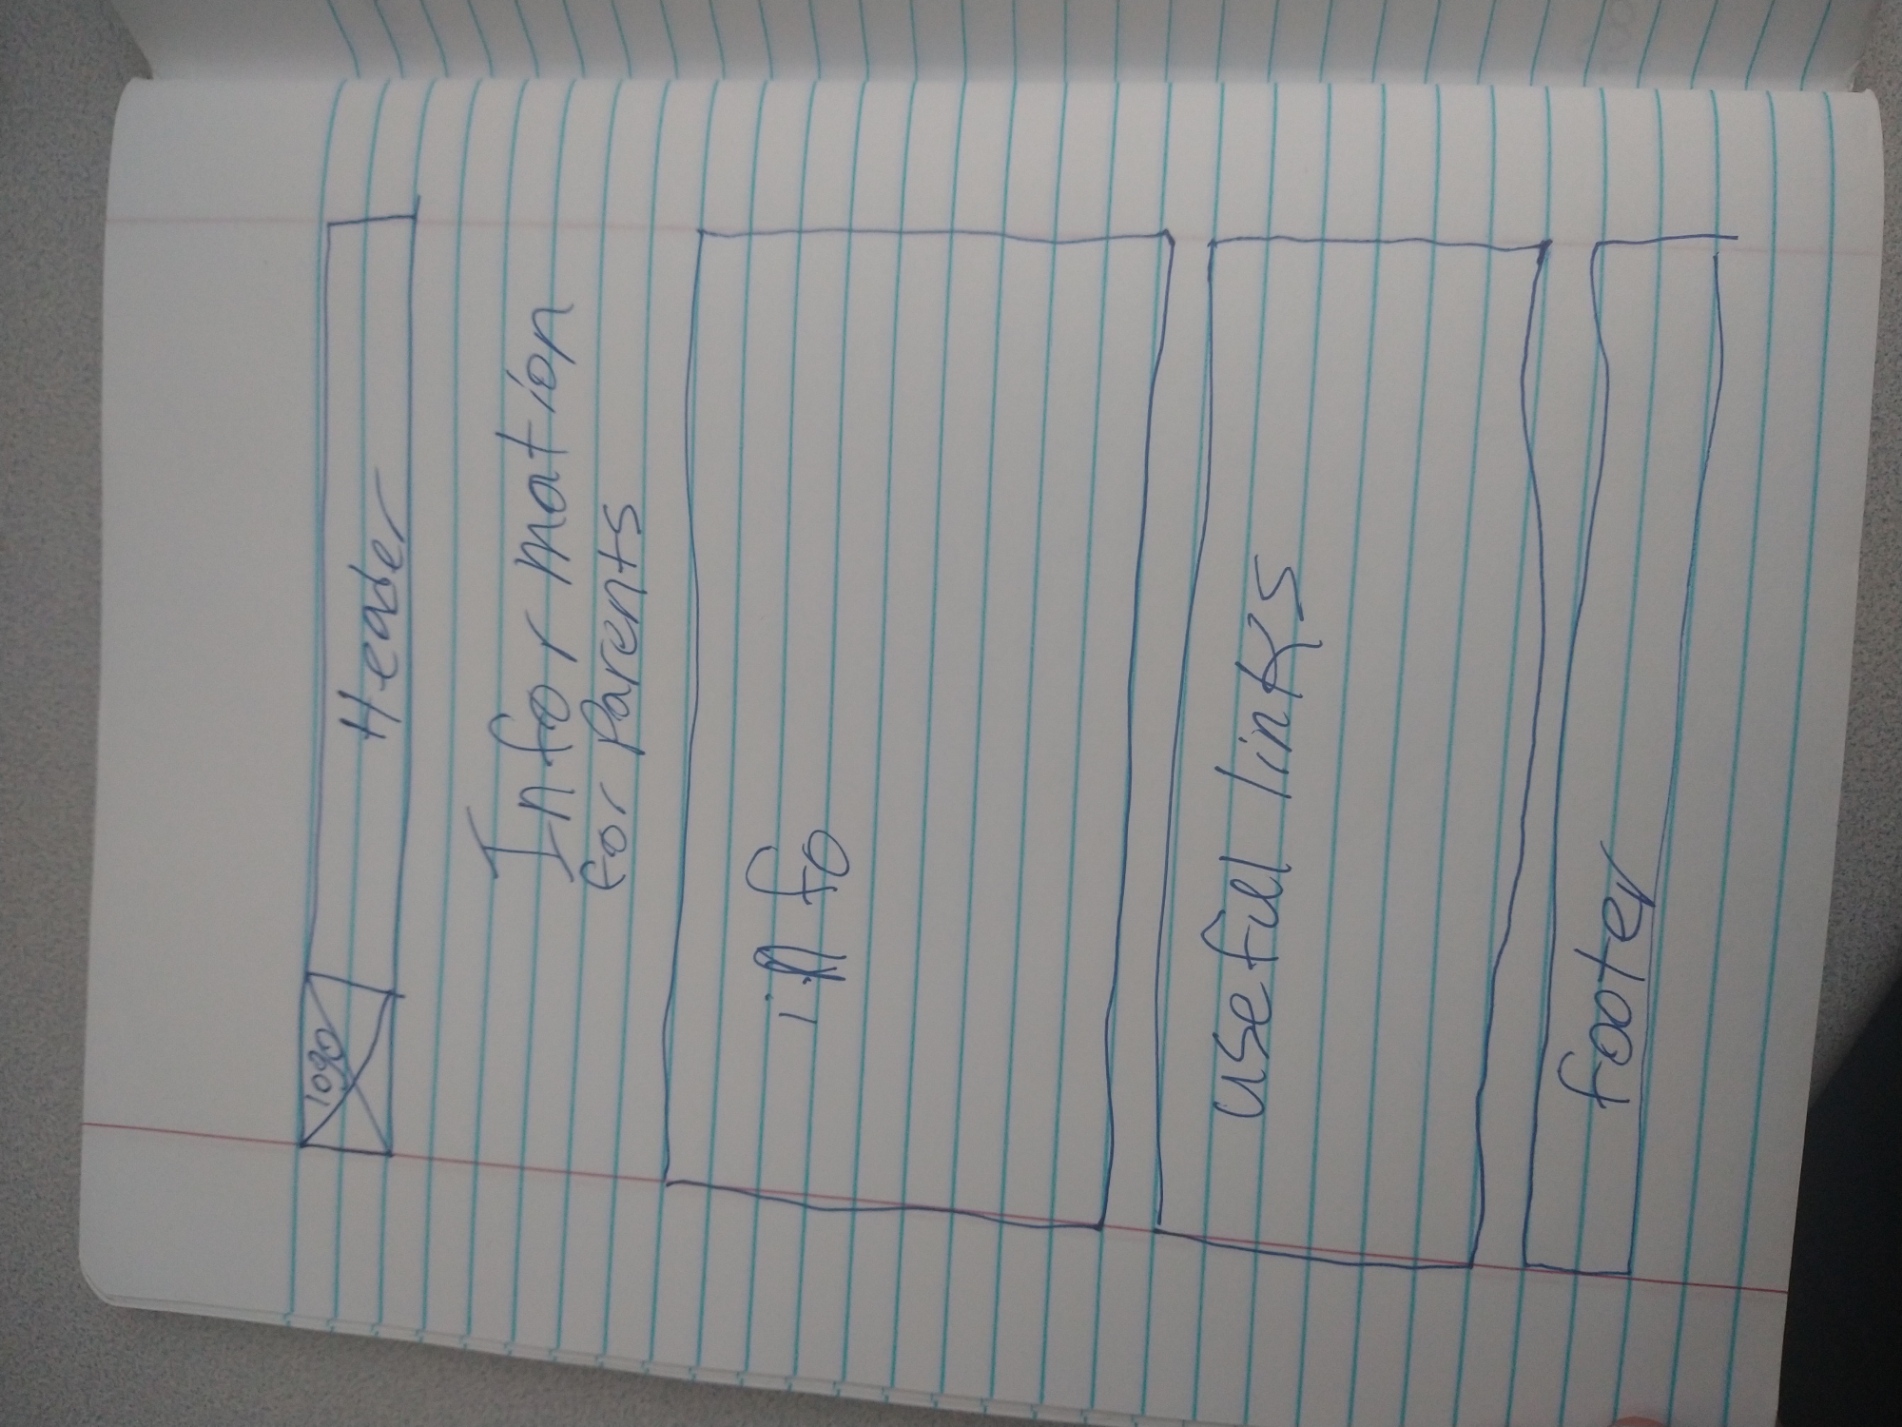 logo
Header
Information
for Parents
info
useful links
footer